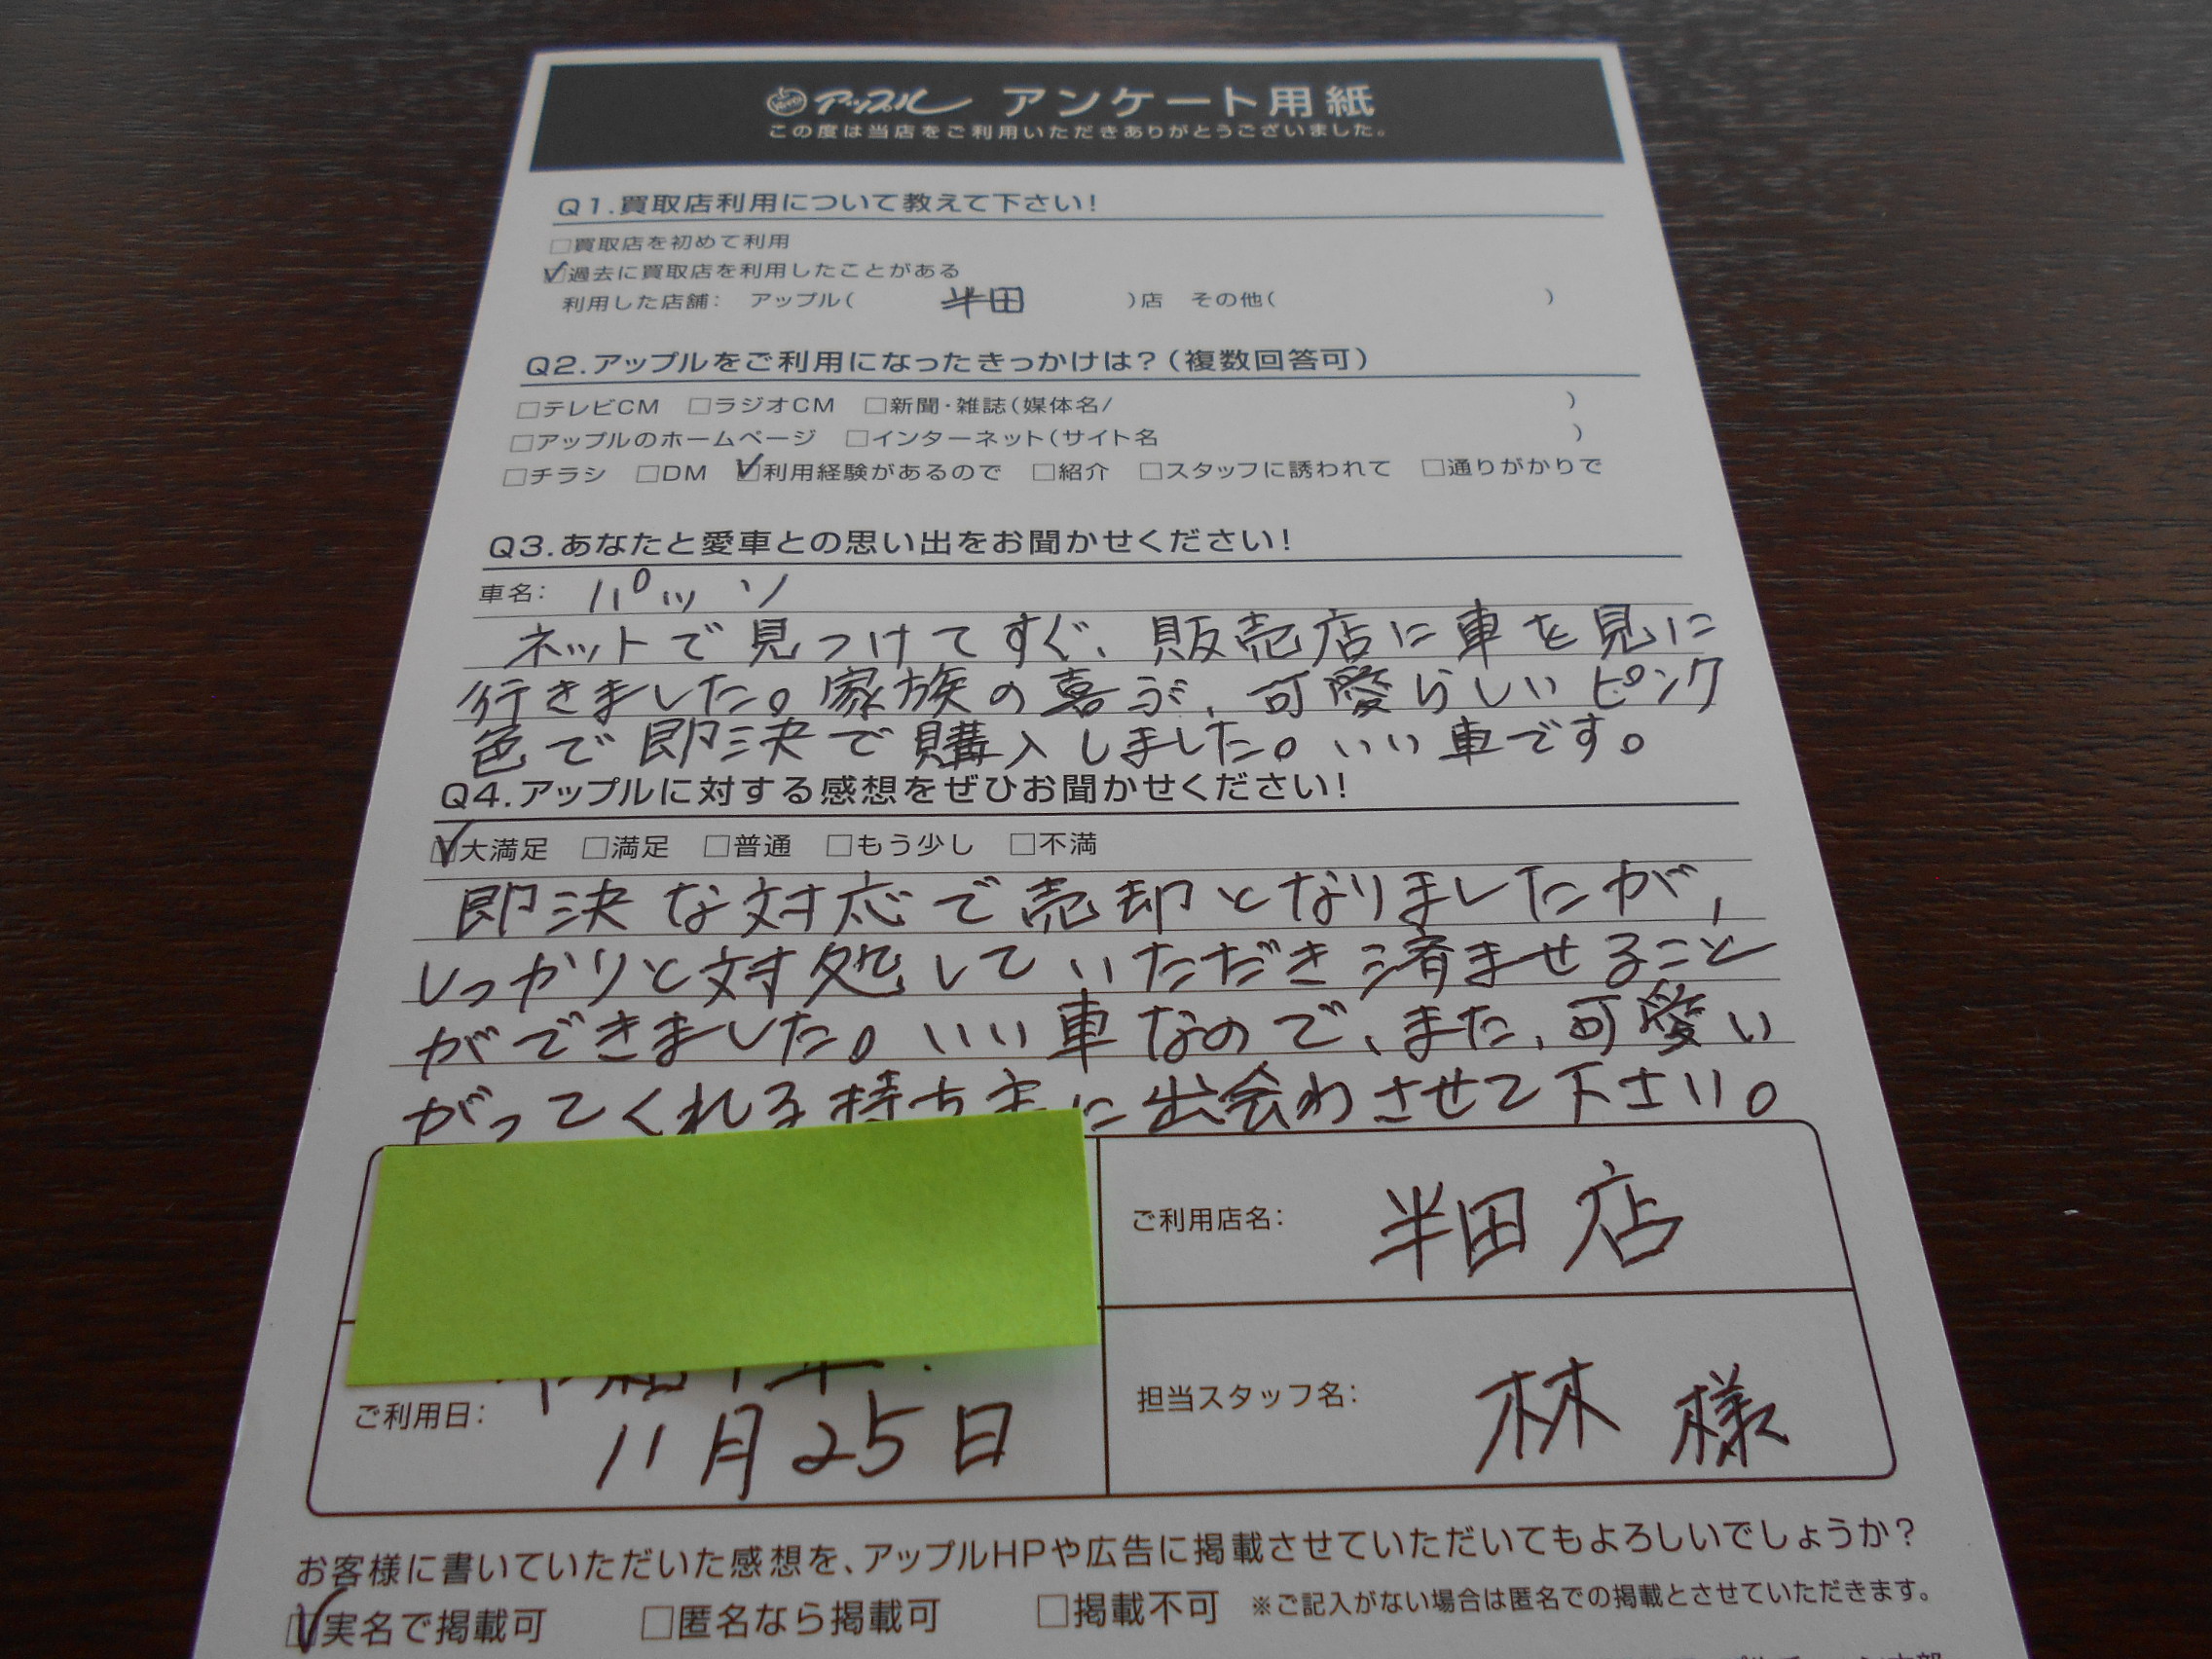 アップル アンケート用紙
この度は当店をご利用いただきありがとうございました。
Q1.買取店利用について教えて下さい!
□買取店を初めて利用
☑過去に買取店を利用したことがある
利用した店舗: アップル( 半田 )店 その他( )
Q2.アップルをご利用になったきっかけは?(複数回答可)
□テレビCM □ラジオCM □新聞・雑誌(媒体名/ )
□アップルのホームページ □インターネット(サイト名 )
□チラシ □DM ☑利用経験があるので □紹介 □スタッフに誘われて □通りがかりで
Q3.あなたと愛車との思い出をお聞かせください!
車名: パッソ
ネットで見つけてすぐ、販売店に車を見に
行きました。家族の喜ぶ、可愛らしいピンク
色で即決で購入しました。いい車です。
Q4.アップルに対する感想をぜひお聞かせください!
☑大満足 □満足 □普通 □もう少し □不満
即決な対応で売却となりましたが、
しっかりと対処していただき済ませること
ができました。いい車なので、また、可愛い
がってくれる持ち主に出会わさせて下さい。
ご利用店名: 半田店
ご利用日: 11月25日
担当スタッフ名: 林様
お客様に書いていただいた感想を、アップルHPや広告に掲載させていただいてもよろしいでしょうか?
☑実名で掲載可 □匿名なら掲載可 □掲載不可 ※ご記入がない場合は匿名での掲載とさせていただきます。